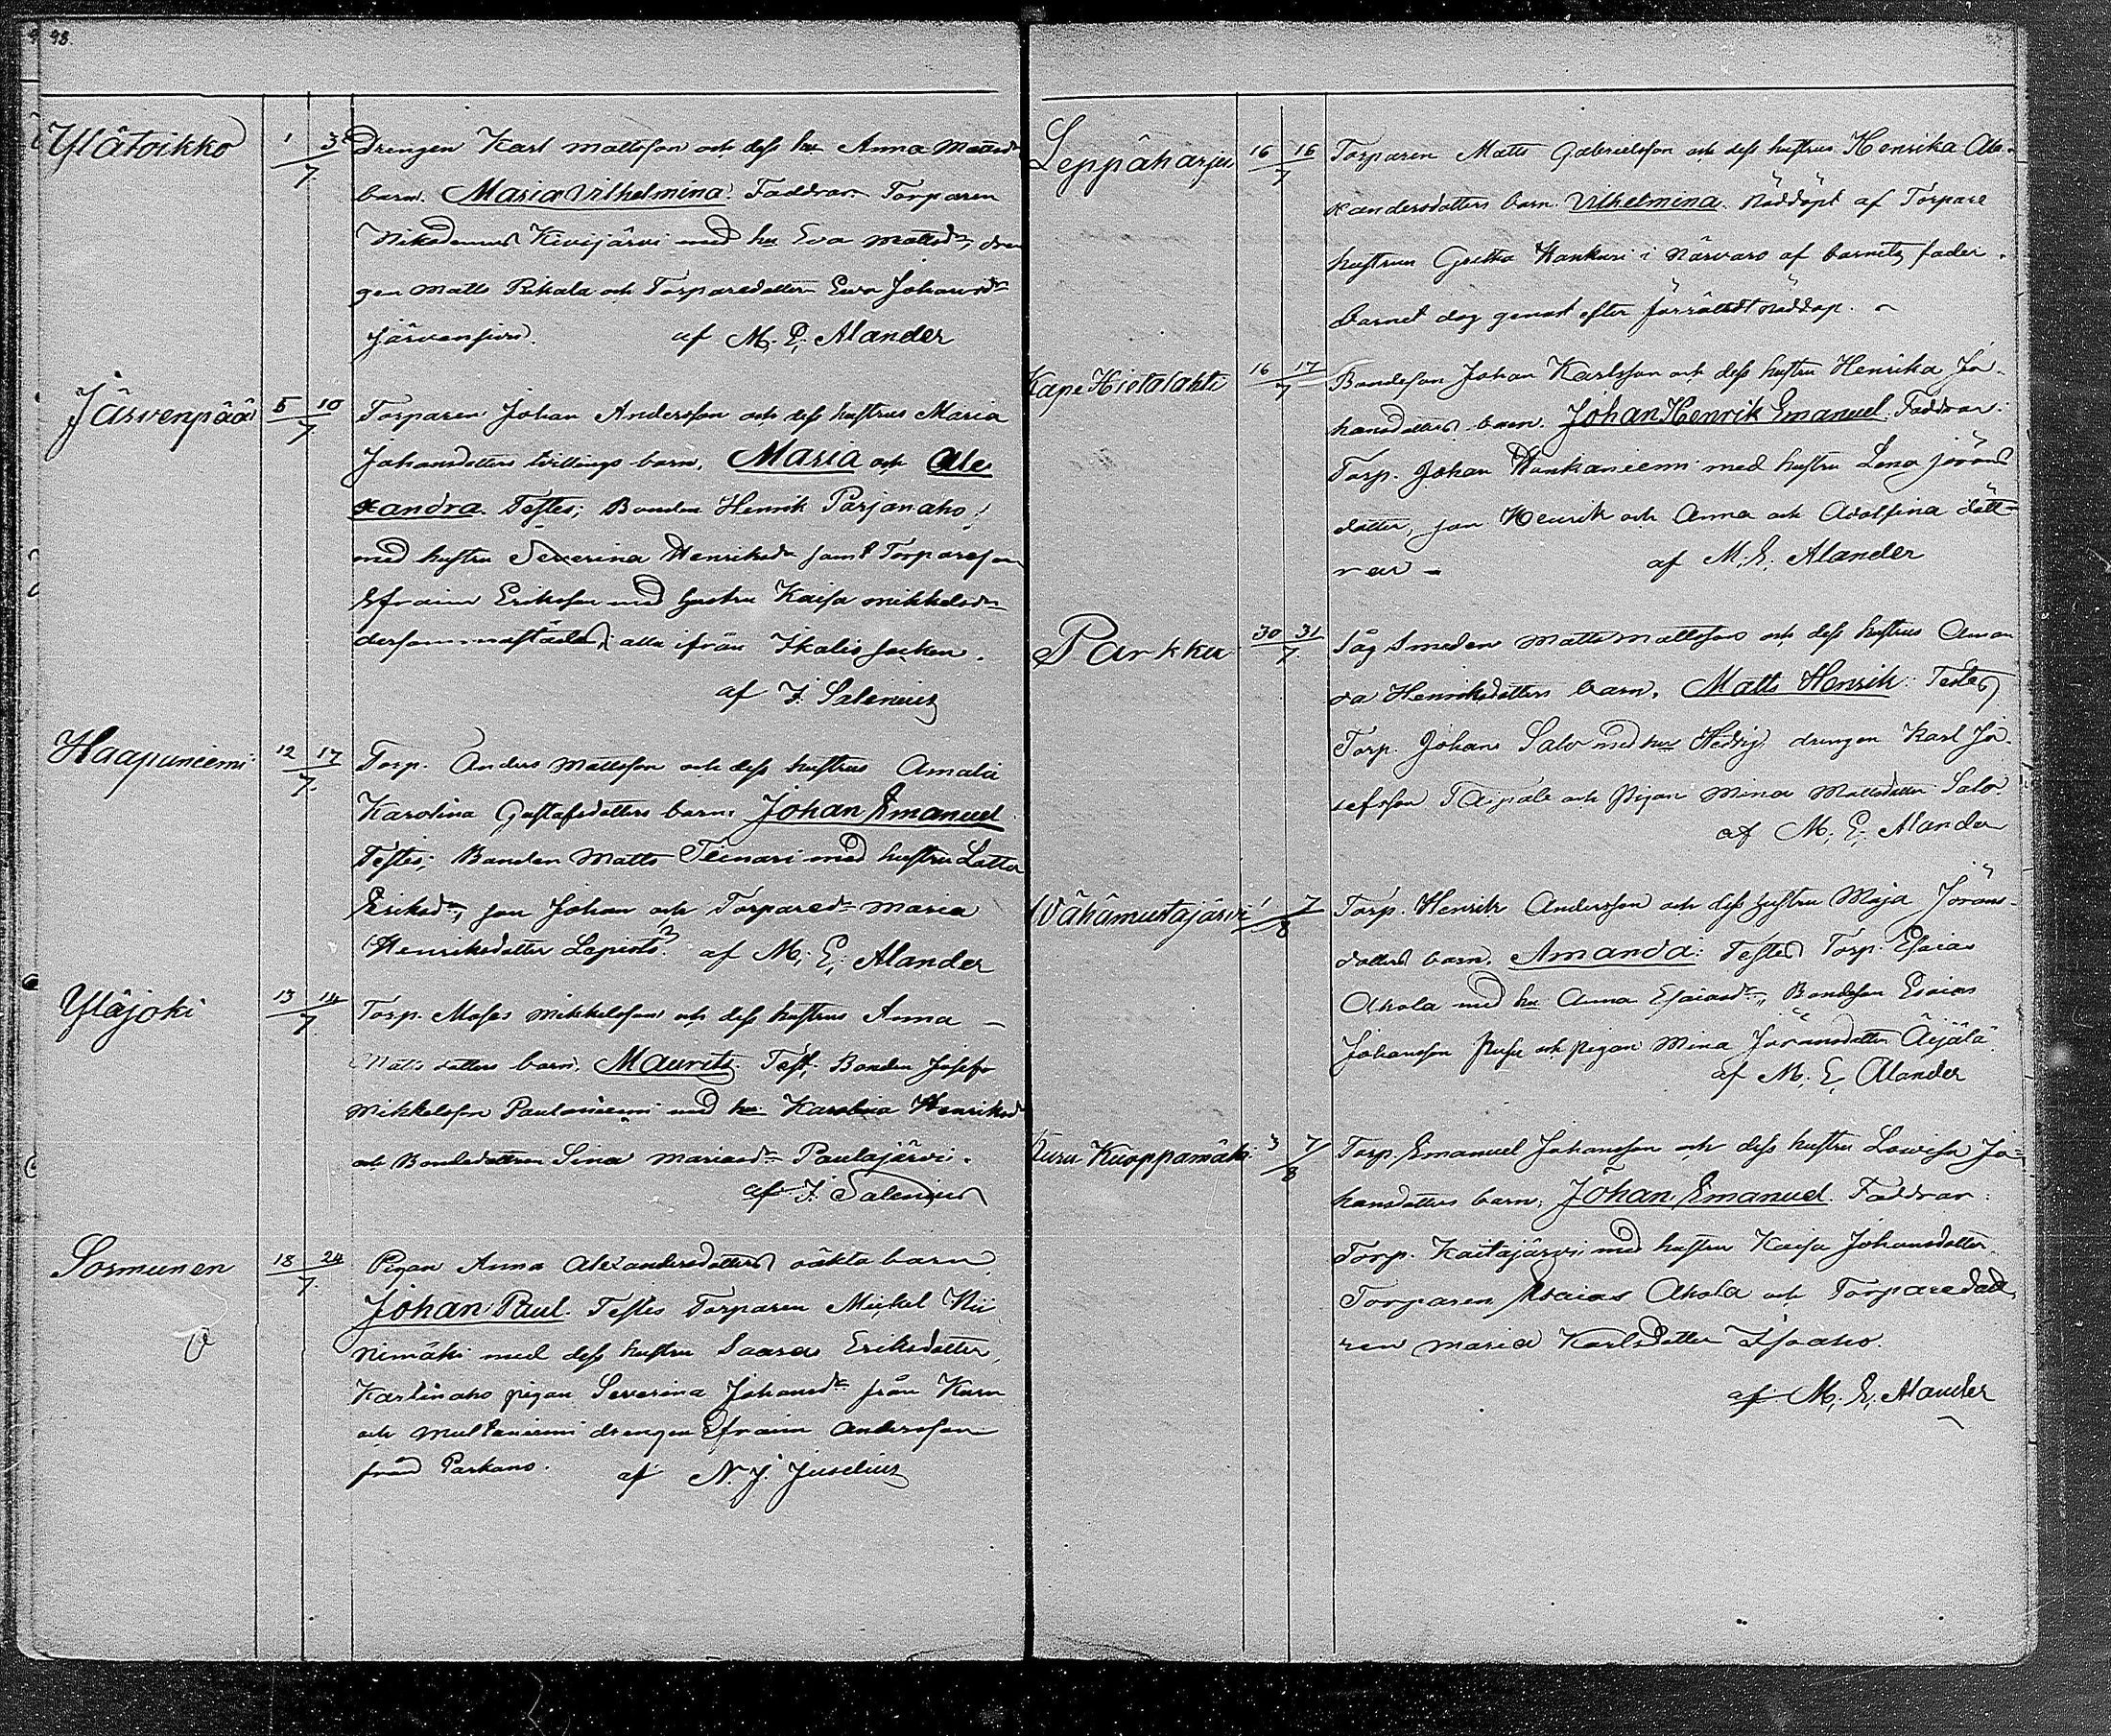 98.
Ylätoikko 1 3/7 Drengen Karl Mattsson och dess hu Anna Mattsdr
barn. Maria Vilhelmina. Faddrar Torparen
Nikodemus Kivijärvi med hu Eva Mattsdr, dren
gen Matts Pihala och Torparedottern Eva Johansdr
Järvensivu. af M. E. Alander
Järvenpää 5 10/7 Torparen Johan Andersson och dess hustrus Maria
Johansdotters tvillings barn, Maria och Ale
xandra. Testes; Bonden Henrik Parjanaho
med hustru Severina Henriksdr samt Torpareson
Efraim Eriksson med hustru Kaisa Mikkelsdr
dersammastädes, alla ifrån Ikalis socken.
af F. Salenius
Haapaniemi 12 17/7. Torp. Anders Mattsson och dess hustrus Amalia
Karolina Gustafsdotters barn. Johan Emanuel
Testes; Bonden Matts Teinari med hustru Lotta
Eriksdr, son Johan och Torparedr Maria
Henriksdotter Lepistö. af M. E. Alander
Yläjoki 13 14/7 Torp. Moses Mikkelsson och dess hustrus Anna
Matts dotters barn, Maurits. Test; Bonden Josef
Mikkelsson Paulaniemi med hu Karolina Henriksd
och Bondedottren Sina Mariasdr Paulajärvi.
af F. Salenius
Sormunen 18 24/7. Pigan Anna Alexandersdotters oäkta barn
Johan Paul. Testes Torparen Mickel Nii
nimäki med dess hustru Saara Eriksdotter,
Karlinaho pigan Severina Johansdr från Kuru
och Multaniemi drengen Efraim Andersson
från Parkano. af N. J. Juselius
Leppäharju 16 16/7 Torparen Matts Gabrielsson och dess hustrus Henrika Ale-
xandersdotters barn. Vilhelmina. Nöddöpt af Torpare
hustrun Gretha Kankuri i närvaro af barnets fader.
Barnet dog genast efter förrättadt nöddop.
Kape Hietalahti 16 17/7 Bondeson Johan Karlsson och dess hustru Henrika Jo-
hansdotters barn. Johan Henrik Emanuel. Faddrar:
Torp. Johan Vankaniemi med hustru Lena Jörans
dotter, son Henrik och Anna och Adolfina dött-
rar - af M. E. Alander
Parkku 30 31/7. Såg Smeden Matts Mattsson och dess hustrus Aman
da Henriksdotters barn, Matts Henrik. Testes
Torp. Johan Salo med hu Hedvig, drengen Karl Jo-
sefsson Taipale och Pigan Mina Mattsdotter Salo.
af M. E. Alander
Vähämustajärvi 1 7/8 Torp. Henrik Andersson och dess hustru Maja Jörans-
dotters barn. Amanda. Testes Torp. Esaias
Ahola med hu Anna Esaiasdr, Bondeson Esaias
Johansson och Pigan Mina Jöransdotter Äijälä.
af M. E. Alander
Kuru Kuoppamäki 3 7/8 Torp. Emanuel Johansson och dess hustru Lowisa Jo-
hansdotters barn, Johan Emanuel. Faddrar:
Torp. Kaitajärvi med hustru Kaisa Johansdotter
Torparen Esaias Ahola och Torparedott
ren Maria Karlsdotter Isoaho.
af M. E. Alander